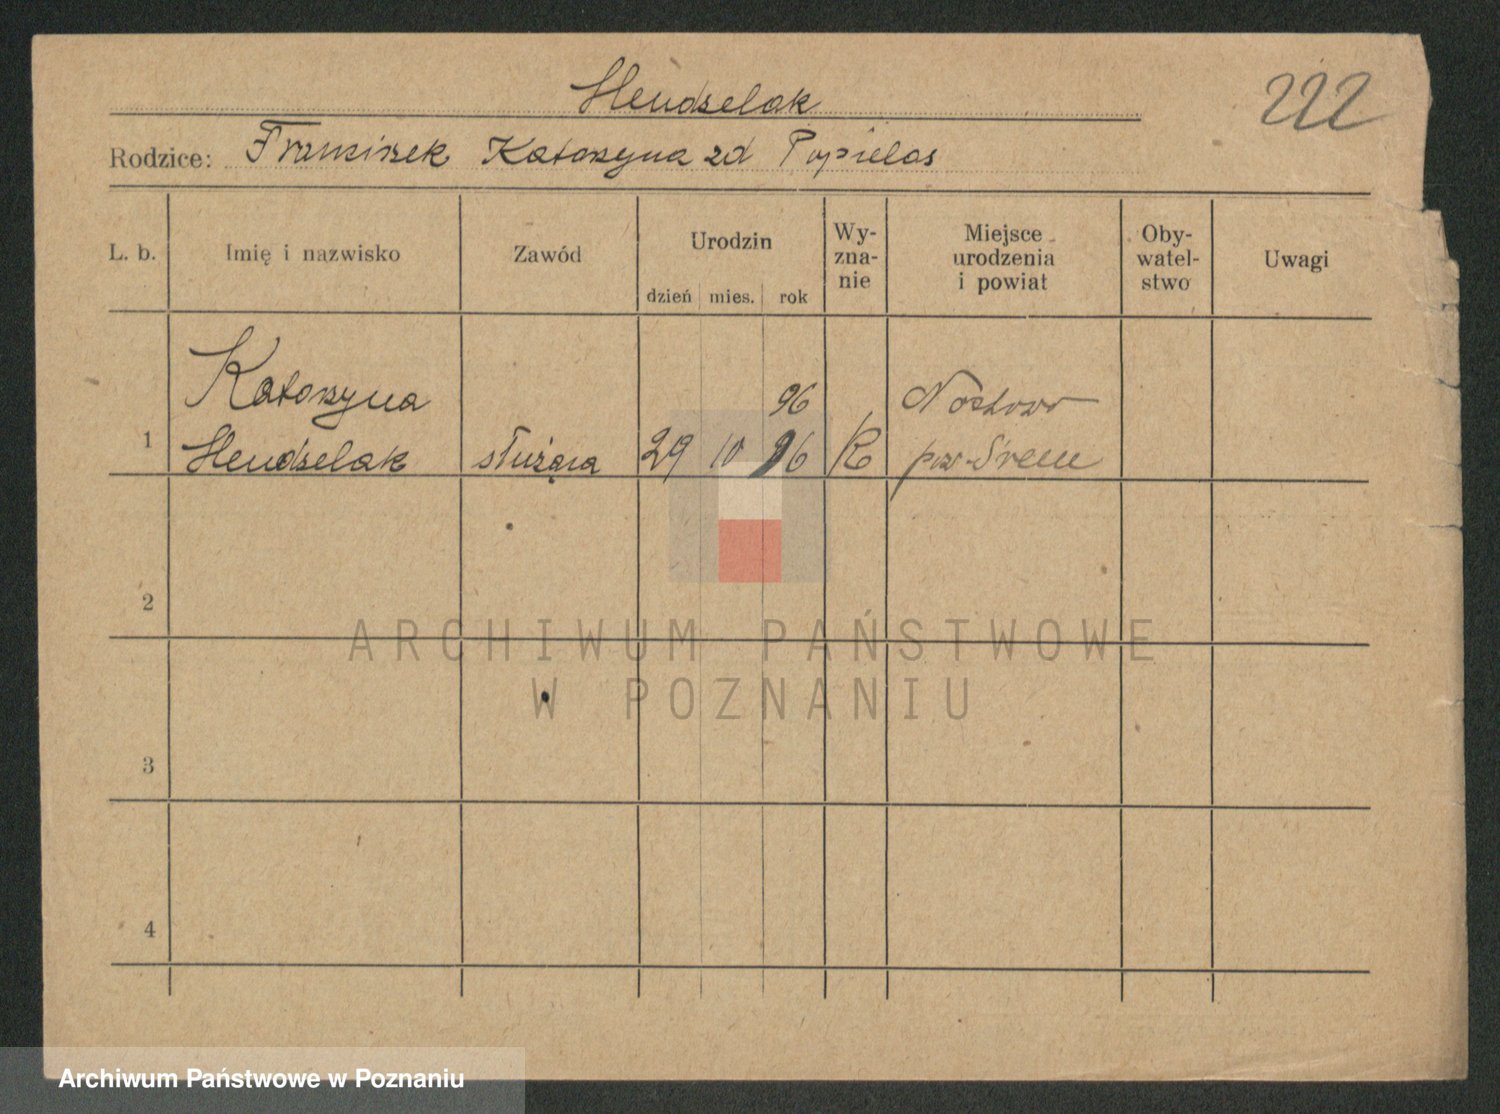 Hendzelak
222
Rodzice: Franciszek Katarzyna zd Popielas
L. b.
Imię i nazwisko
Zawód
Urodzin
dzień mies. rok
Wy-
zna-
nie
Miejsce
urodzenia
i powiat
Oby-
watel-
stwo
Uwagi
Katarzyna
96
1 Hendzelak służąca 29 10 96 R
pow. Śrem
2
3
4
ARCHIWUM PAŃSTWOWE
W POZNANIU
Archiwum Państwowe w Poznaniu